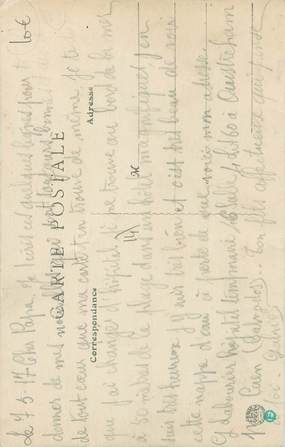 CARTE POSTALE
Correspondance
Adresse
Le 7 5 17 Cher Papa, Je t'écris ces quelques lignes pour te
donner de mes nouvelles qui sont toujours bonnes
de tout cœur que ma carte t'en trouve de même. Je te
que j'ai changé d'hôpital je me trouve au bord de la mer
à 50 mètres de la plage dans un hôtel magnifique, j'en
suis très heureux suis très bien et c'est très beau de voir
cette nappe d'eau à perte de vue voici mon adresse
hôpital temporaire salle 60 à Ouistreham
Caen (Calvados). Ton fils affectueux qui pense
à toi
10€